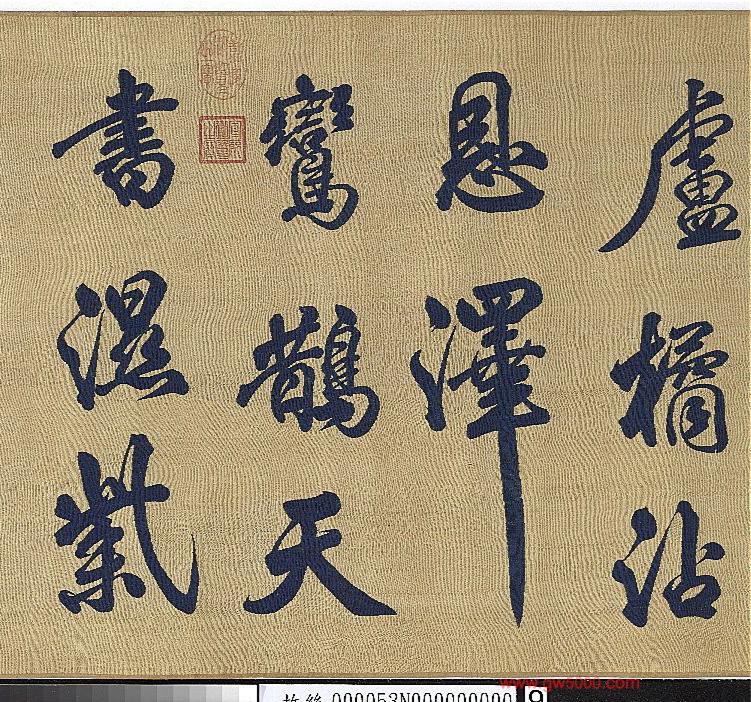 盧橘沾
恩澤
鸞鵲天
書濕
故絲 000053N000000000 9
www.gw5000.com